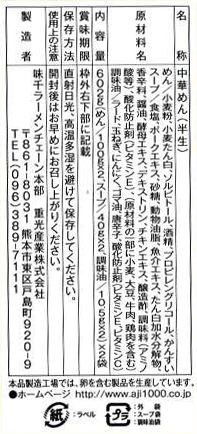 名称 中華めん(半生)
原材料名 めん(小麦粉、小麦たん白、ソルビトール、酒精、プロピレングリコール、かんすい)
スープ(食塩、ポークエキス、砂糖、動物油脂、魚介エキス、たん白加水分解物、
香辛料、醤油、酵母エキス、デキストリン、チキンエキス、醸造酢、調味料(アミノ
酸等)、酸化防止剤(ビタミンE)、(原材料の一部に小麦、大豆、牛肉、鶏肉を含む)
調味油(ラード、玉ねぎ、にんにく、ゴマ油、唐辛子、酸化防止剤(ビタミンE、ビタミンC))
内容量 602g(めん/100g×2、スープ/40g×2、調味油/10.5g×2)×2袋
賞味期限 枠外右下部に記載
保存方法 直射日光、高温多湿を避けて保存してください。
使用上の注意 開封後はお早めにお召し上がりください。
製造者 味千ラーメンチェーン本部 重光産業株式会社
〒861-8031 熊本市東区戸島町920-9
TEL(096)389-7111
本品製造工場では、卵を含む製品も製造しています。
●ホームページ http://www.aji1000.co.jp
紙 :ラベル
プラ 外袋 スープ袋 調味油袋